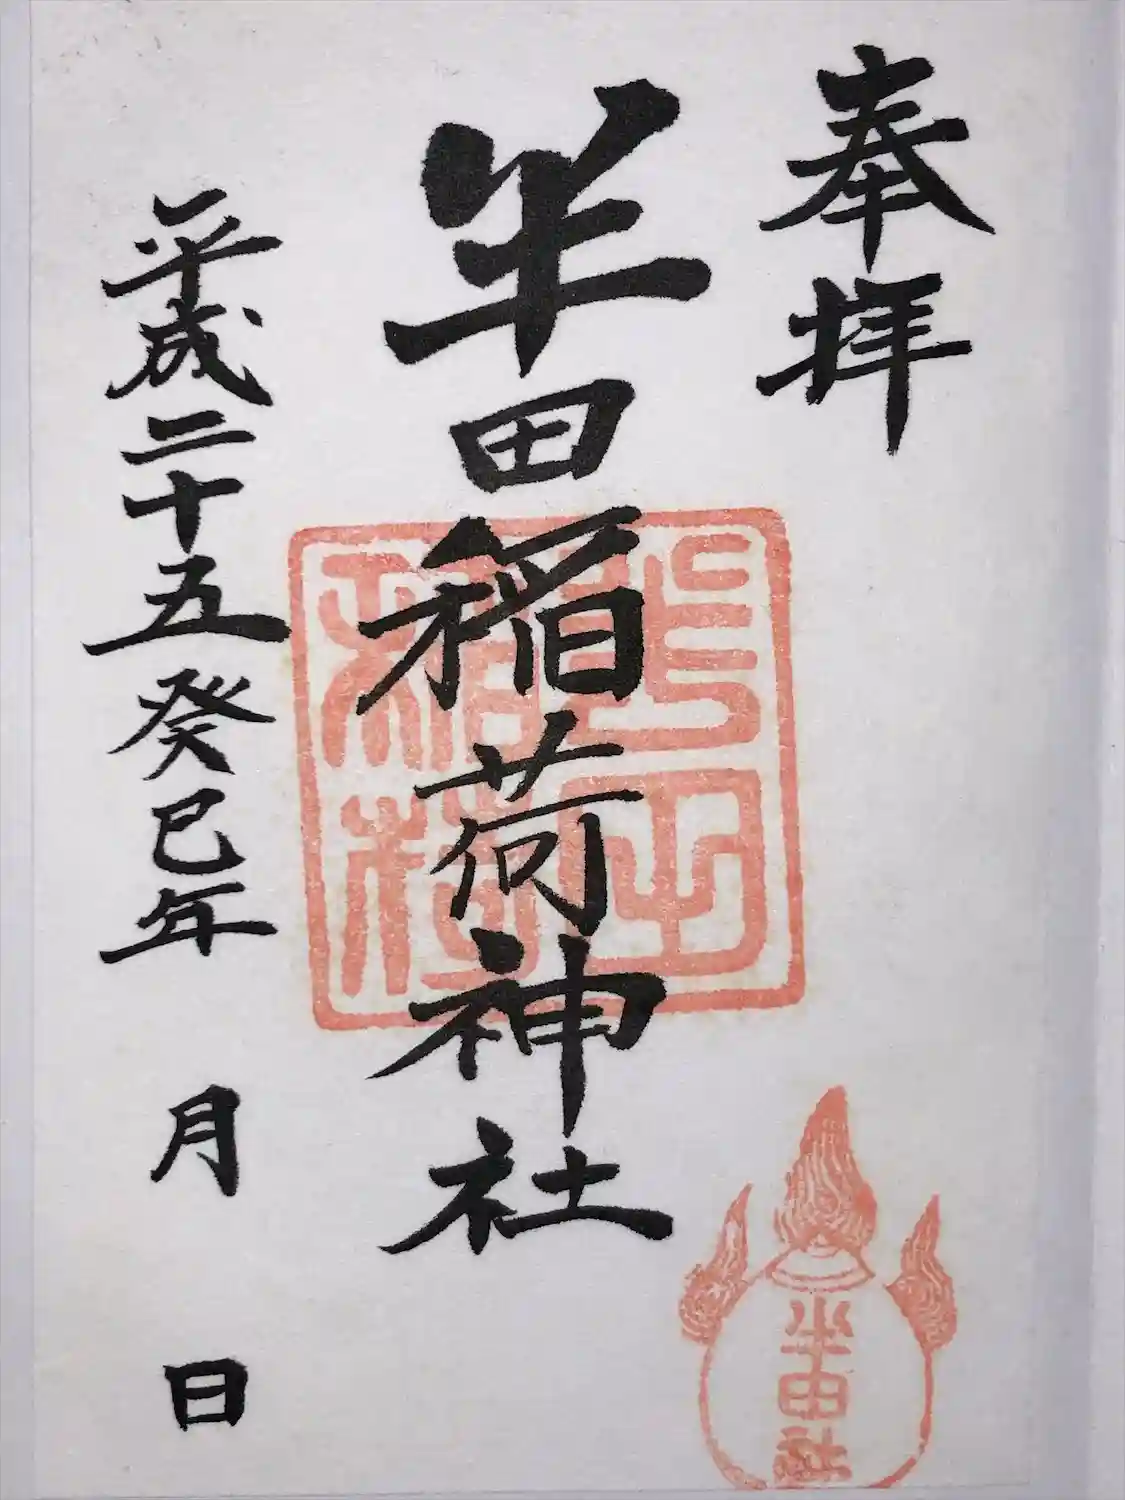 奉拝
半田稲荷神社
平成二十五癸巳年　月　日
半田稲荷
半田社